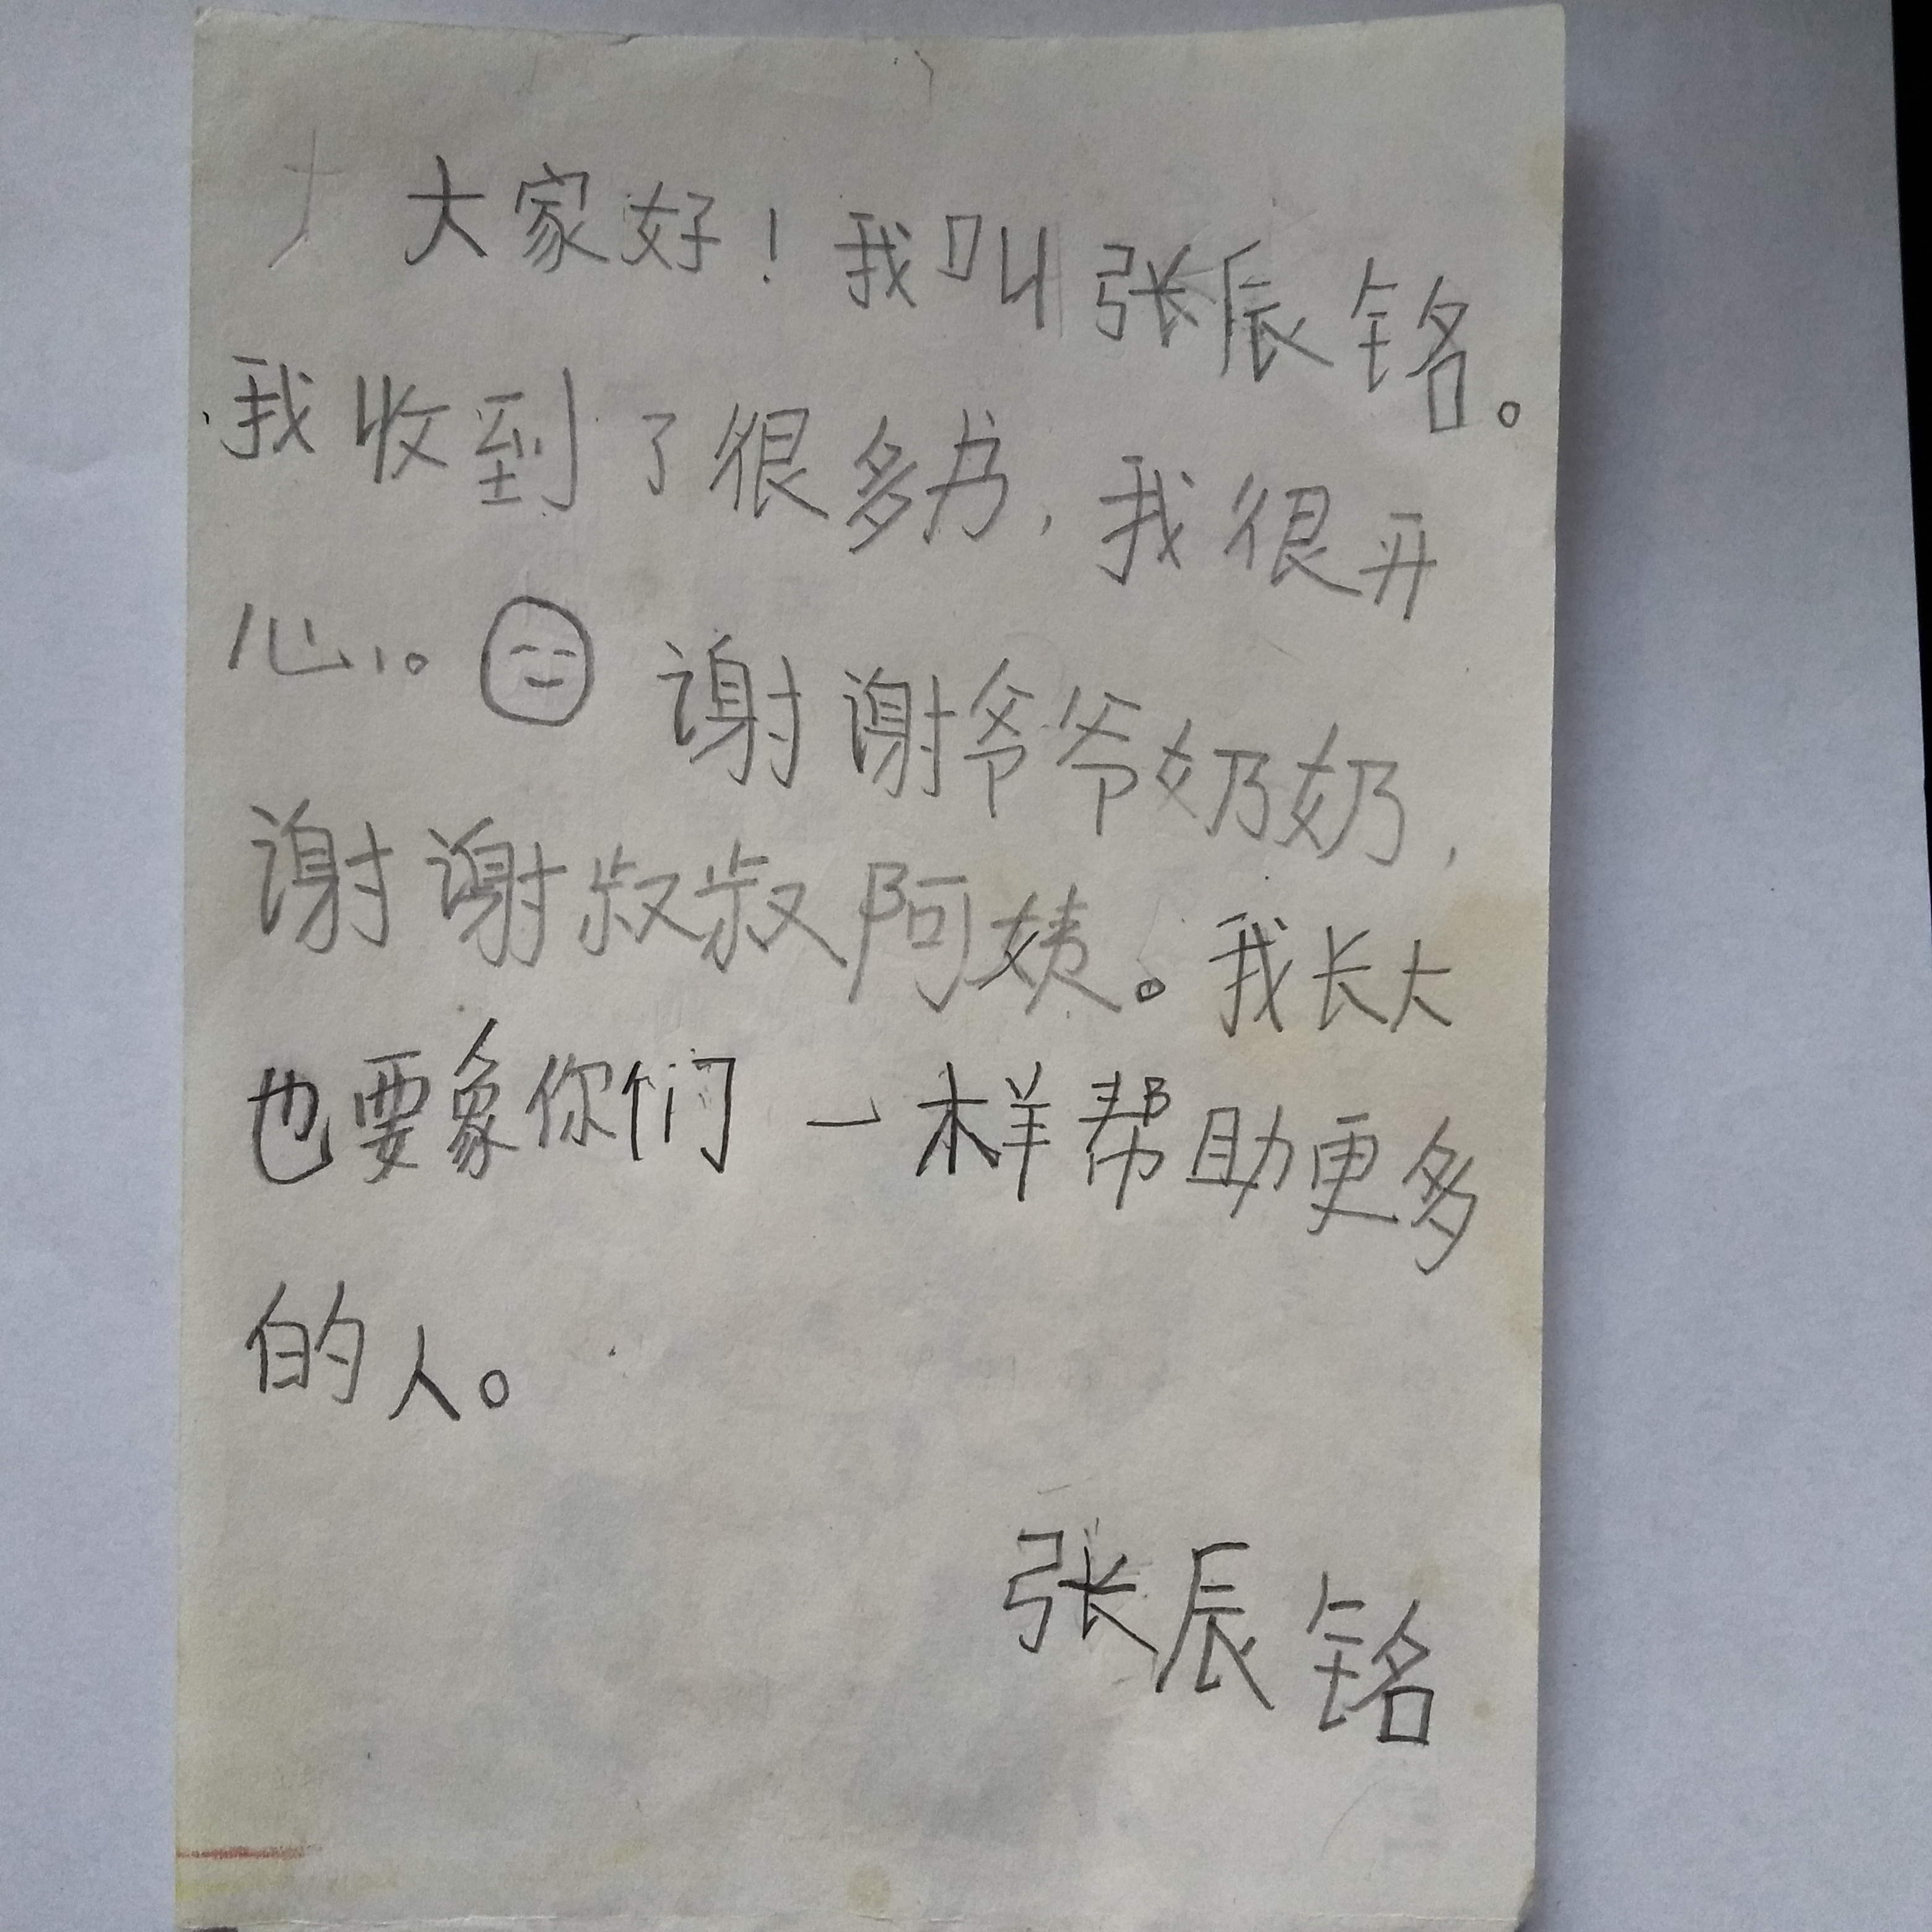 大家好！我叫张辰铭。
我收到了很多书，我很开
心。谢谢爷爷奶奶，
谢谢叔叔阿姨。我长大
也要象你们一样帮助更多
的人。
张辰铭